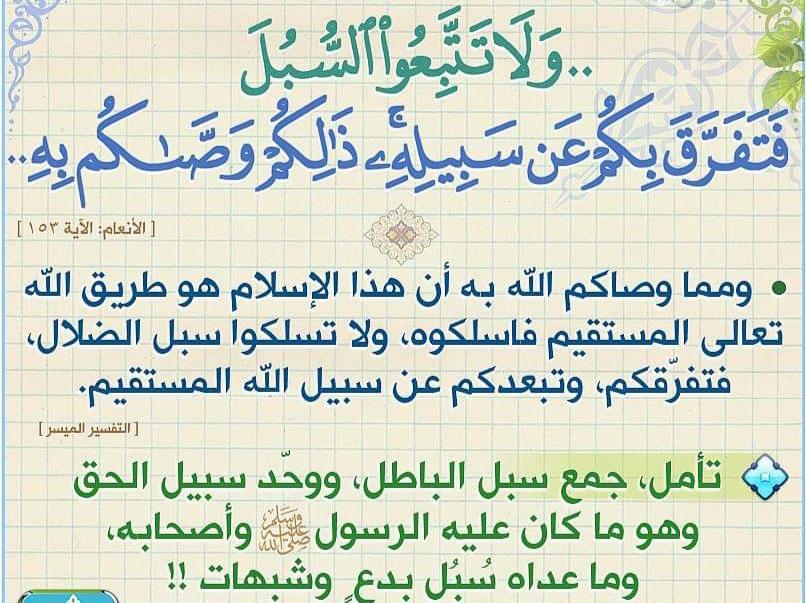 ..وَلَا تَتَّبِعُوا۟ ٱلسُّبُلَ
فَتَفَرَّقَ بِكُمْ عَن سَبِيلِهِۦۚ ذَٰلِكُمْ وَصَّىٰكُم بِهِۦ..
[ الأنعام: الآية ١٥٣ ]
• ومما وصاكم الله به أن هذا الإسلام هو طريق الله
تعالى المستقيم فاسلكوه، ولا تسلكوا سبل الضلال،
فتفرّقكم، وتبعدكم عن سبيل الله المستقيم.
[ التفسير الميسر ]
تأمل، جمع سبل الباطل، ووحّد سبيل الحق
وهو ما كان عليه الرسول ﷺ وأصحابه،
وما عداه سُبُل بدعٍ وشبهات !!